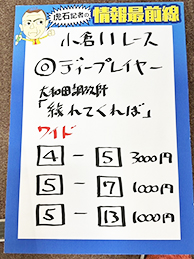 虎石記者の情報最前線
小倉11レース
◎ディープレイヤー
大和田調教師
「緩れてくれば」
ワイド
4-5 3000円
5-7 1000円
5-13 1000円